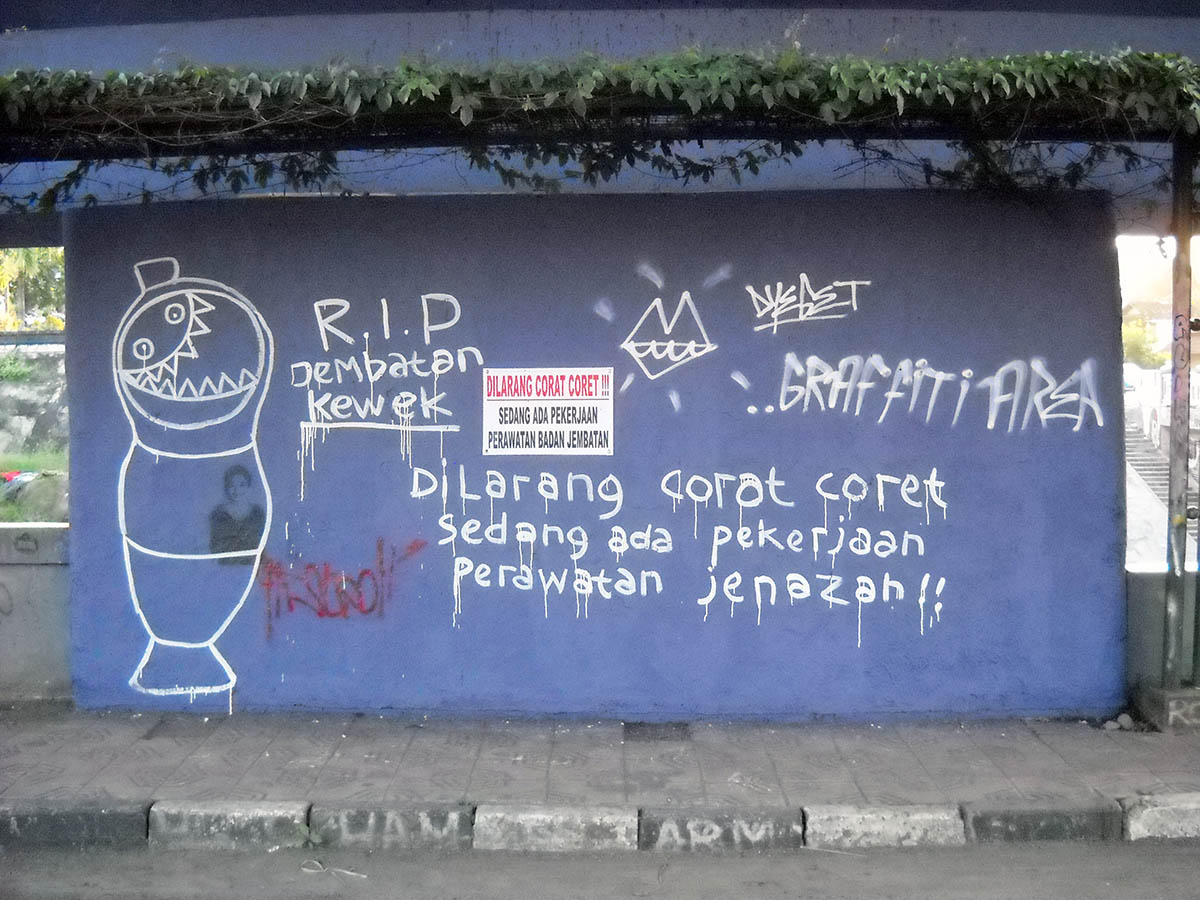 R.I.P
Jembatan
Kewek
DILARANG CORAT CORET !!!
SEDANG ADA PEKERJAAN
PERAWATAN BADAN JEMBATAN
GRAFFITI AREA
DiLarang corat coret
sedang ada pekerjaan
perawatan jenazah!!